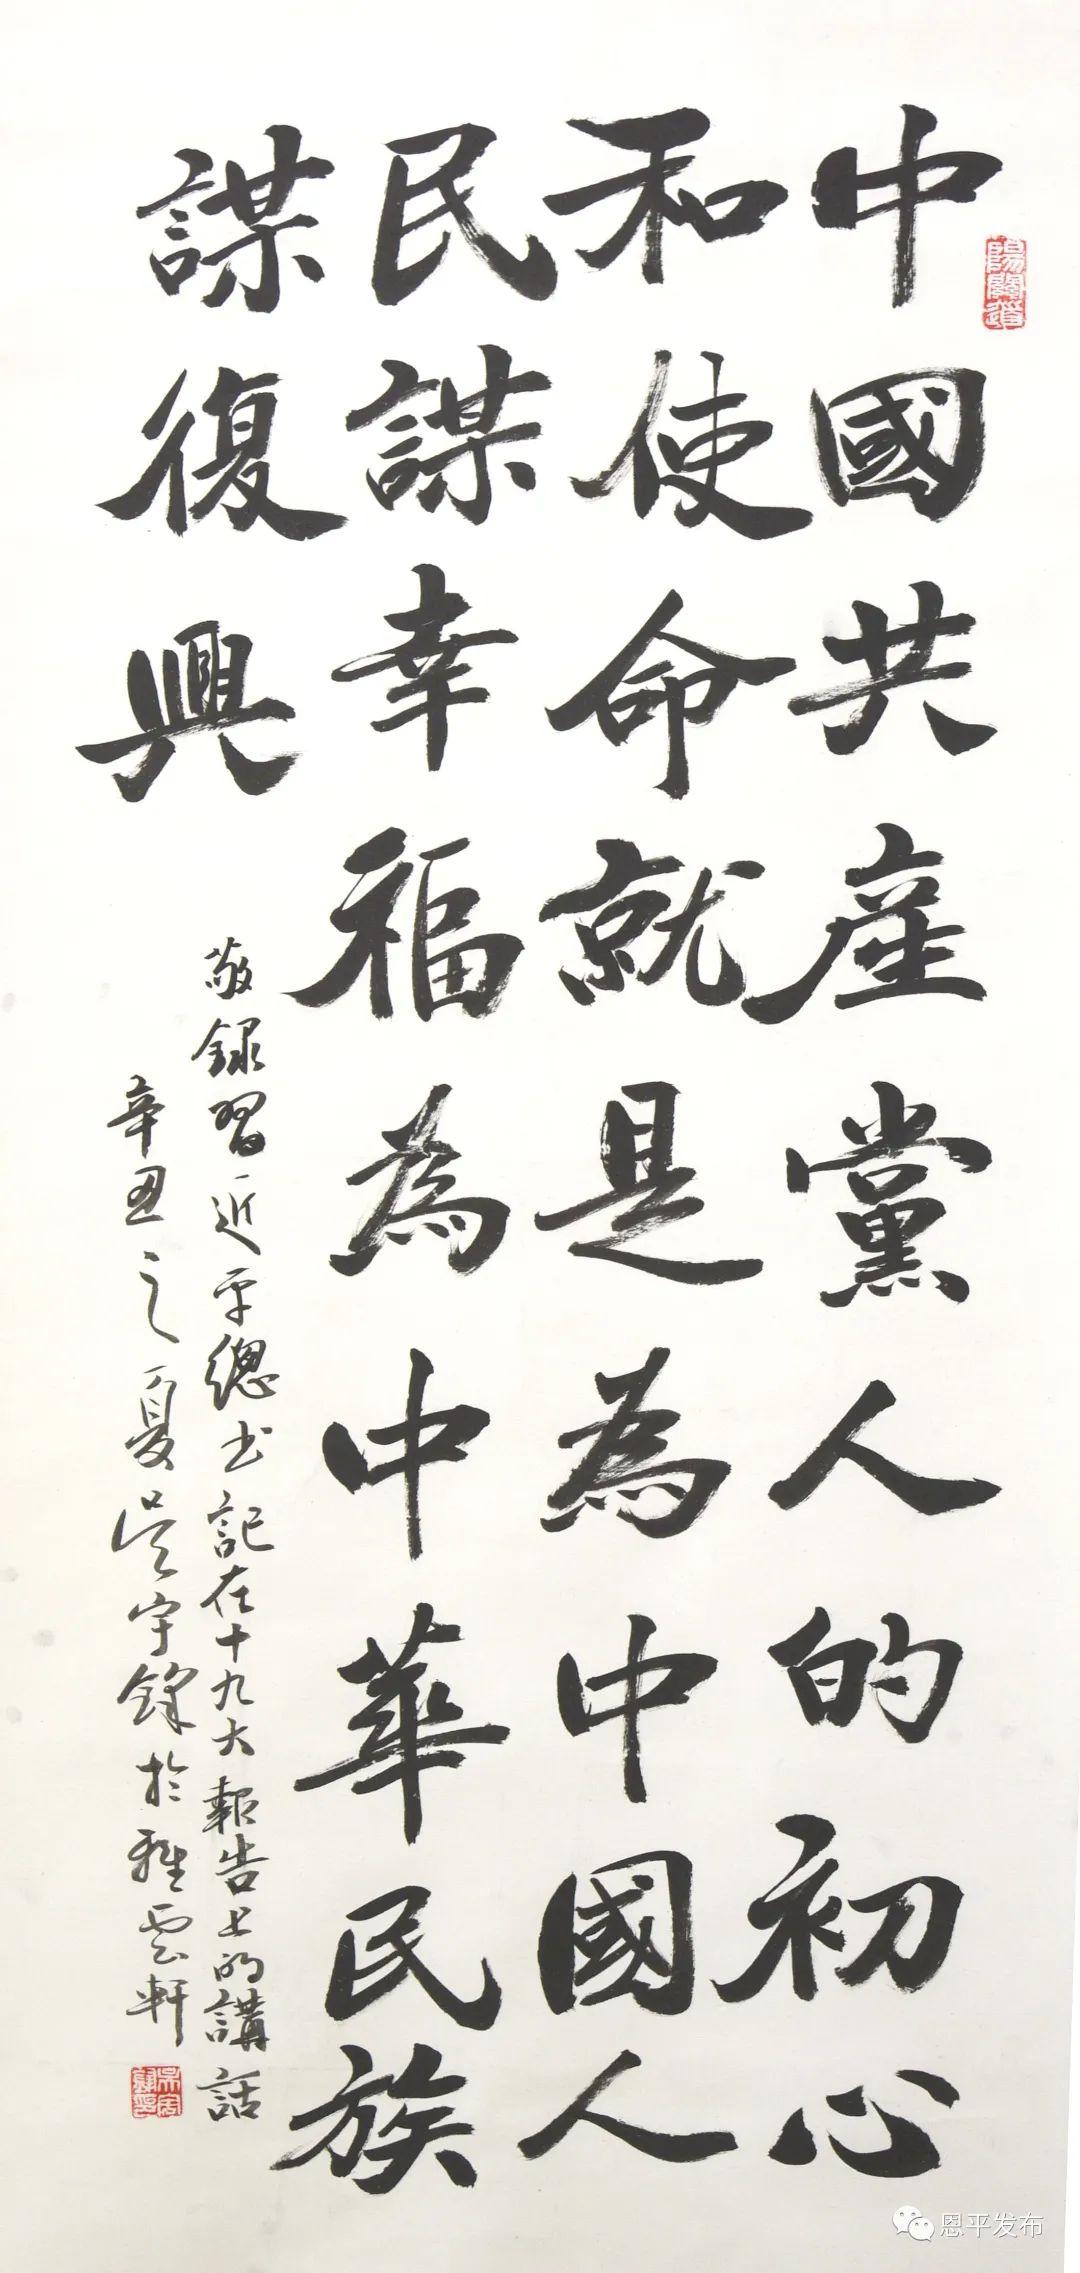 中國共產黨人的初心
和使命就是為中國人
民謀幸福為中華民族
謀復興
敬録習近平總书記在十九大報告上的講話
辛丑之夏吳守鋒於雅雲軒
陽關道
恩平发布